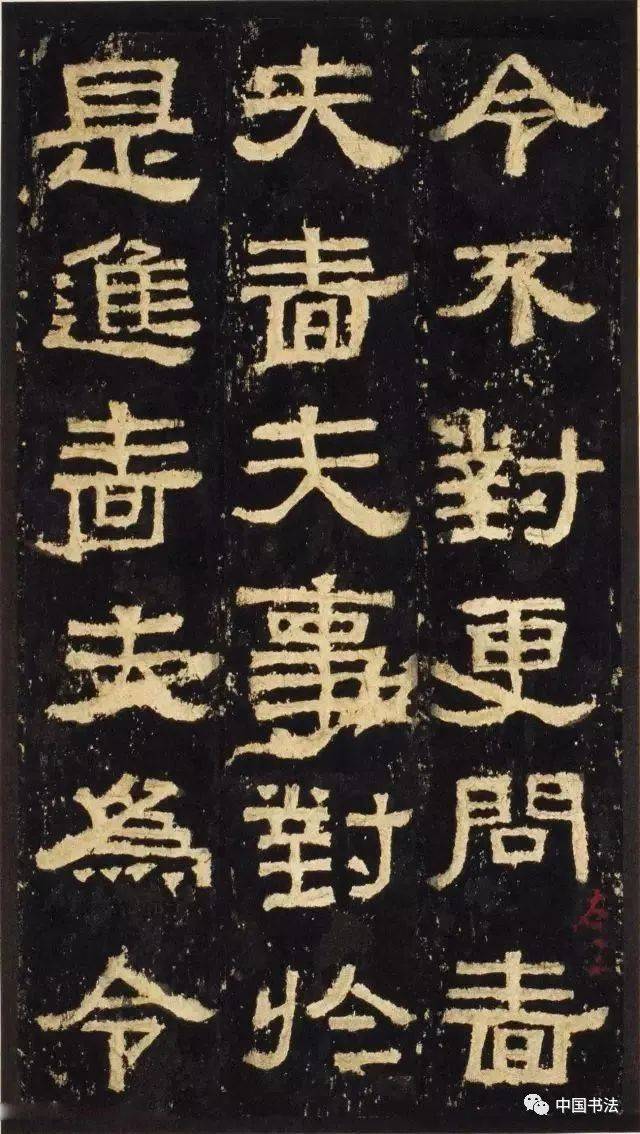 令不對更問嗇
夫嗇夫事對於
是進嗇夫為令
中国书法